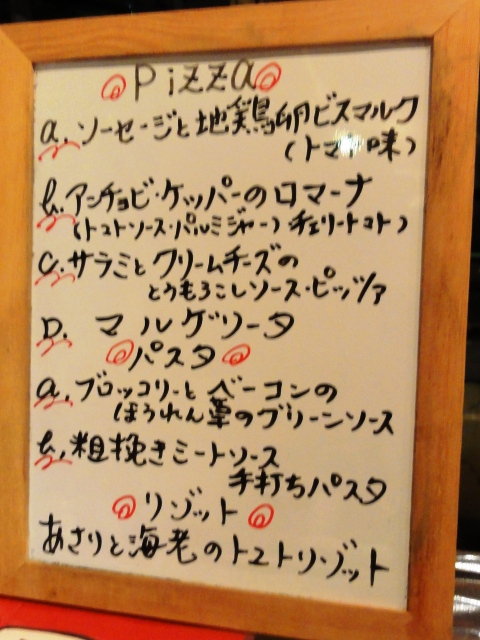 Pizza
a. ソーセージと地鶏卵ビスマルク
(トマト味)
b. アンチョビ・ケッパーのロマーナ
(トマトソース・パルミジャーノ) チェリートマト)
c. サラミとクリームチーズの
とうもろこしソース・ピッツァ
D. マルゲリータ
パスタ
a. ブロッコリーとベーコンの
ほうれん草のグリーンソース
b. 粗挽きミートソース
手打ちパスタ
リゾット
あさりと海老のトマトリゾット